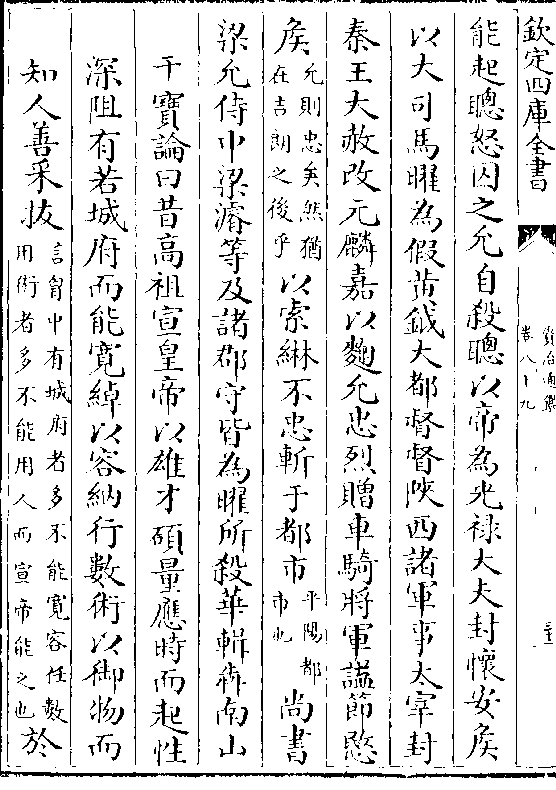 欽定四庫全書
資治通鑑
卷八十九
能起聰怒囚之允自殺聰以帝為光禄大夫封懷安侯
以大司馬曜為假黄鉞大都督督陜西諸軍事太宰封
秦王大赦改元麟嘉以麴允忠烈贈車騎將軍諡節愍
侯允則忠矣然猶在吉朗之後乎以索綝不忠斬于都市平陽都市也尚書
梁允侍中梁濬等及諸郡守皆為曜所殺華輯奔南山
干寶論曰昔高祖宣皇帝以雄才碩量應時而起性
深阻有若城府而能寛綽以容納行數術以御物而
知人善采拔言胷中有城府者多不能寛容任數用術者多不能用人而宣帝能之也於